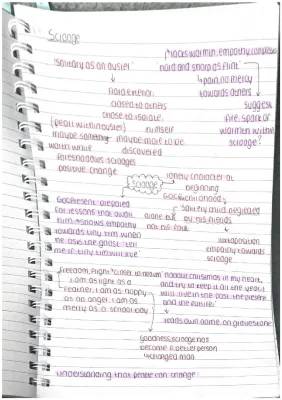 Scrooge
lacks warmth, empathy, compassion
'solitary as an oyster'
'hard and sharp as flint'
pain, no mercy
towards others
hard exterior
closed to others
chose to isolate
himself
suggests
fire, spark or
warmth within
scrooge?
(pearl within oyster)
maybe something
maybe more to be
worth while
discovered
foreshadows scrooges
positive change
scrooge
lonely character at
beginning
GOCPast childhood
'solitary and neglected
by his friends'
alone but
not his fault
juxtaposition
empathy towards
scrooge
GOCPresent prepared
for lessons that await
him + shows empathy
towards tiny tim when
he asks the ghost 'tell
me if tiny tim will live'
freedom, flight
'I am as light as a
feather, I am as happy
as an angel, I am as
merry as a school boy'
'honour christmas in my heart,
and try to keep it all the year. I
will live in the past, the present
and the future'
reads own name on gravestone
goodness, scrooge has
become a better person
changed man
understanding that people can change